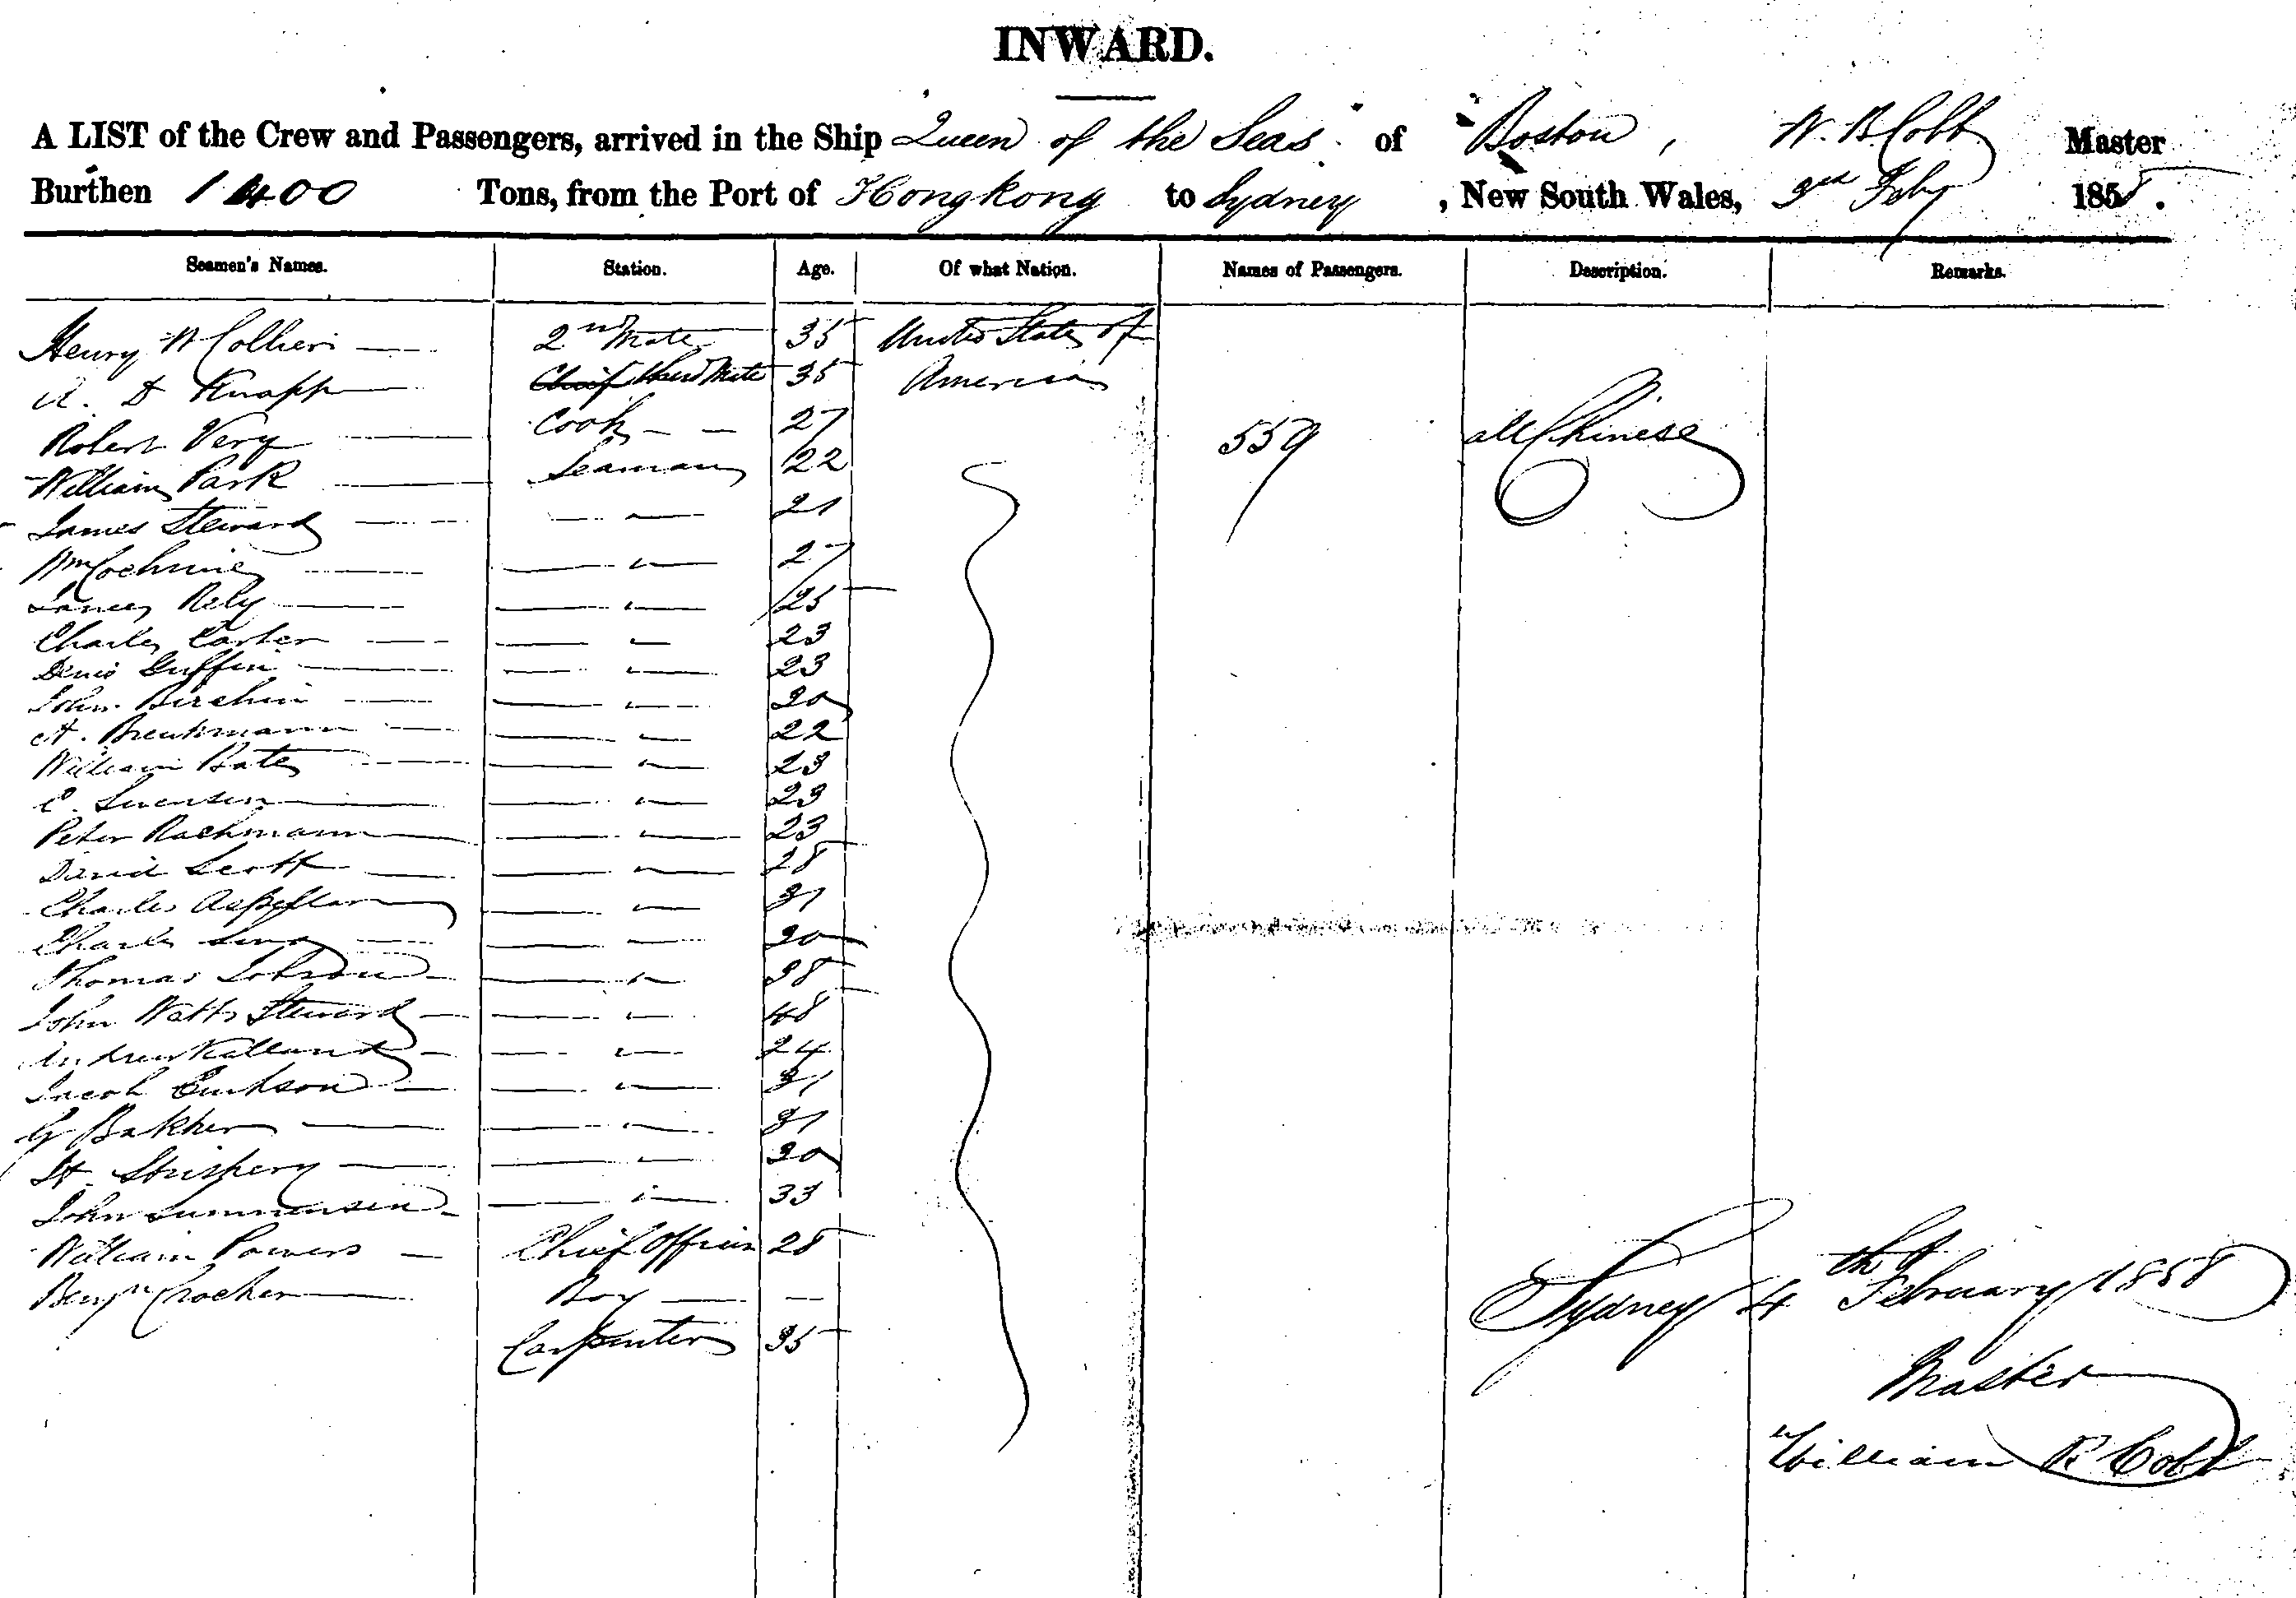 INWARD.
A LIST of the Crew and Passengers, arrived in the Ship Queen of the Seas of Boston, W. B. Cobb Master
Burthen 1400 Tons, from the Port of Hongkong to Sydney, New South Wales, 3rd Feby 1858.
Seamen's Names. Station. Age. Of what Nation. Names of Passengers. Description. Remarks.
Henry W Collier — 2nd Mate 35 United States of
A. D Knapp — Third Mate 35 America
Robert Very — Cook — — 27 559 all Chinese
William Park — Seaman 22
James Steward — — " — 21
Wm — — " — 27
James Rely — — " — 25
Charles Carter — — " — 23
Denis Guffin — — " — 23
John Birchin — — " — 20
A. — — " — 22
William Bates — — " — 23
C. Swensen — — " — 23
Peter Rachmann — — " — 23
David Scott — — " — 28
Charles — — " — 31
Charles — — " — 30
Thomas — — " — 38
John Watts Steward — — " — 48
Andrew — — " — 24
Jacob — — " — 31
G Bakker — — " — 31
— — " — 30
John — — " — 33
William Powers — Chief Officer 28
Benjn Crocker — Boy — —
Carpenter 35
Sydney 4th February 1858
Master
William B Cobb